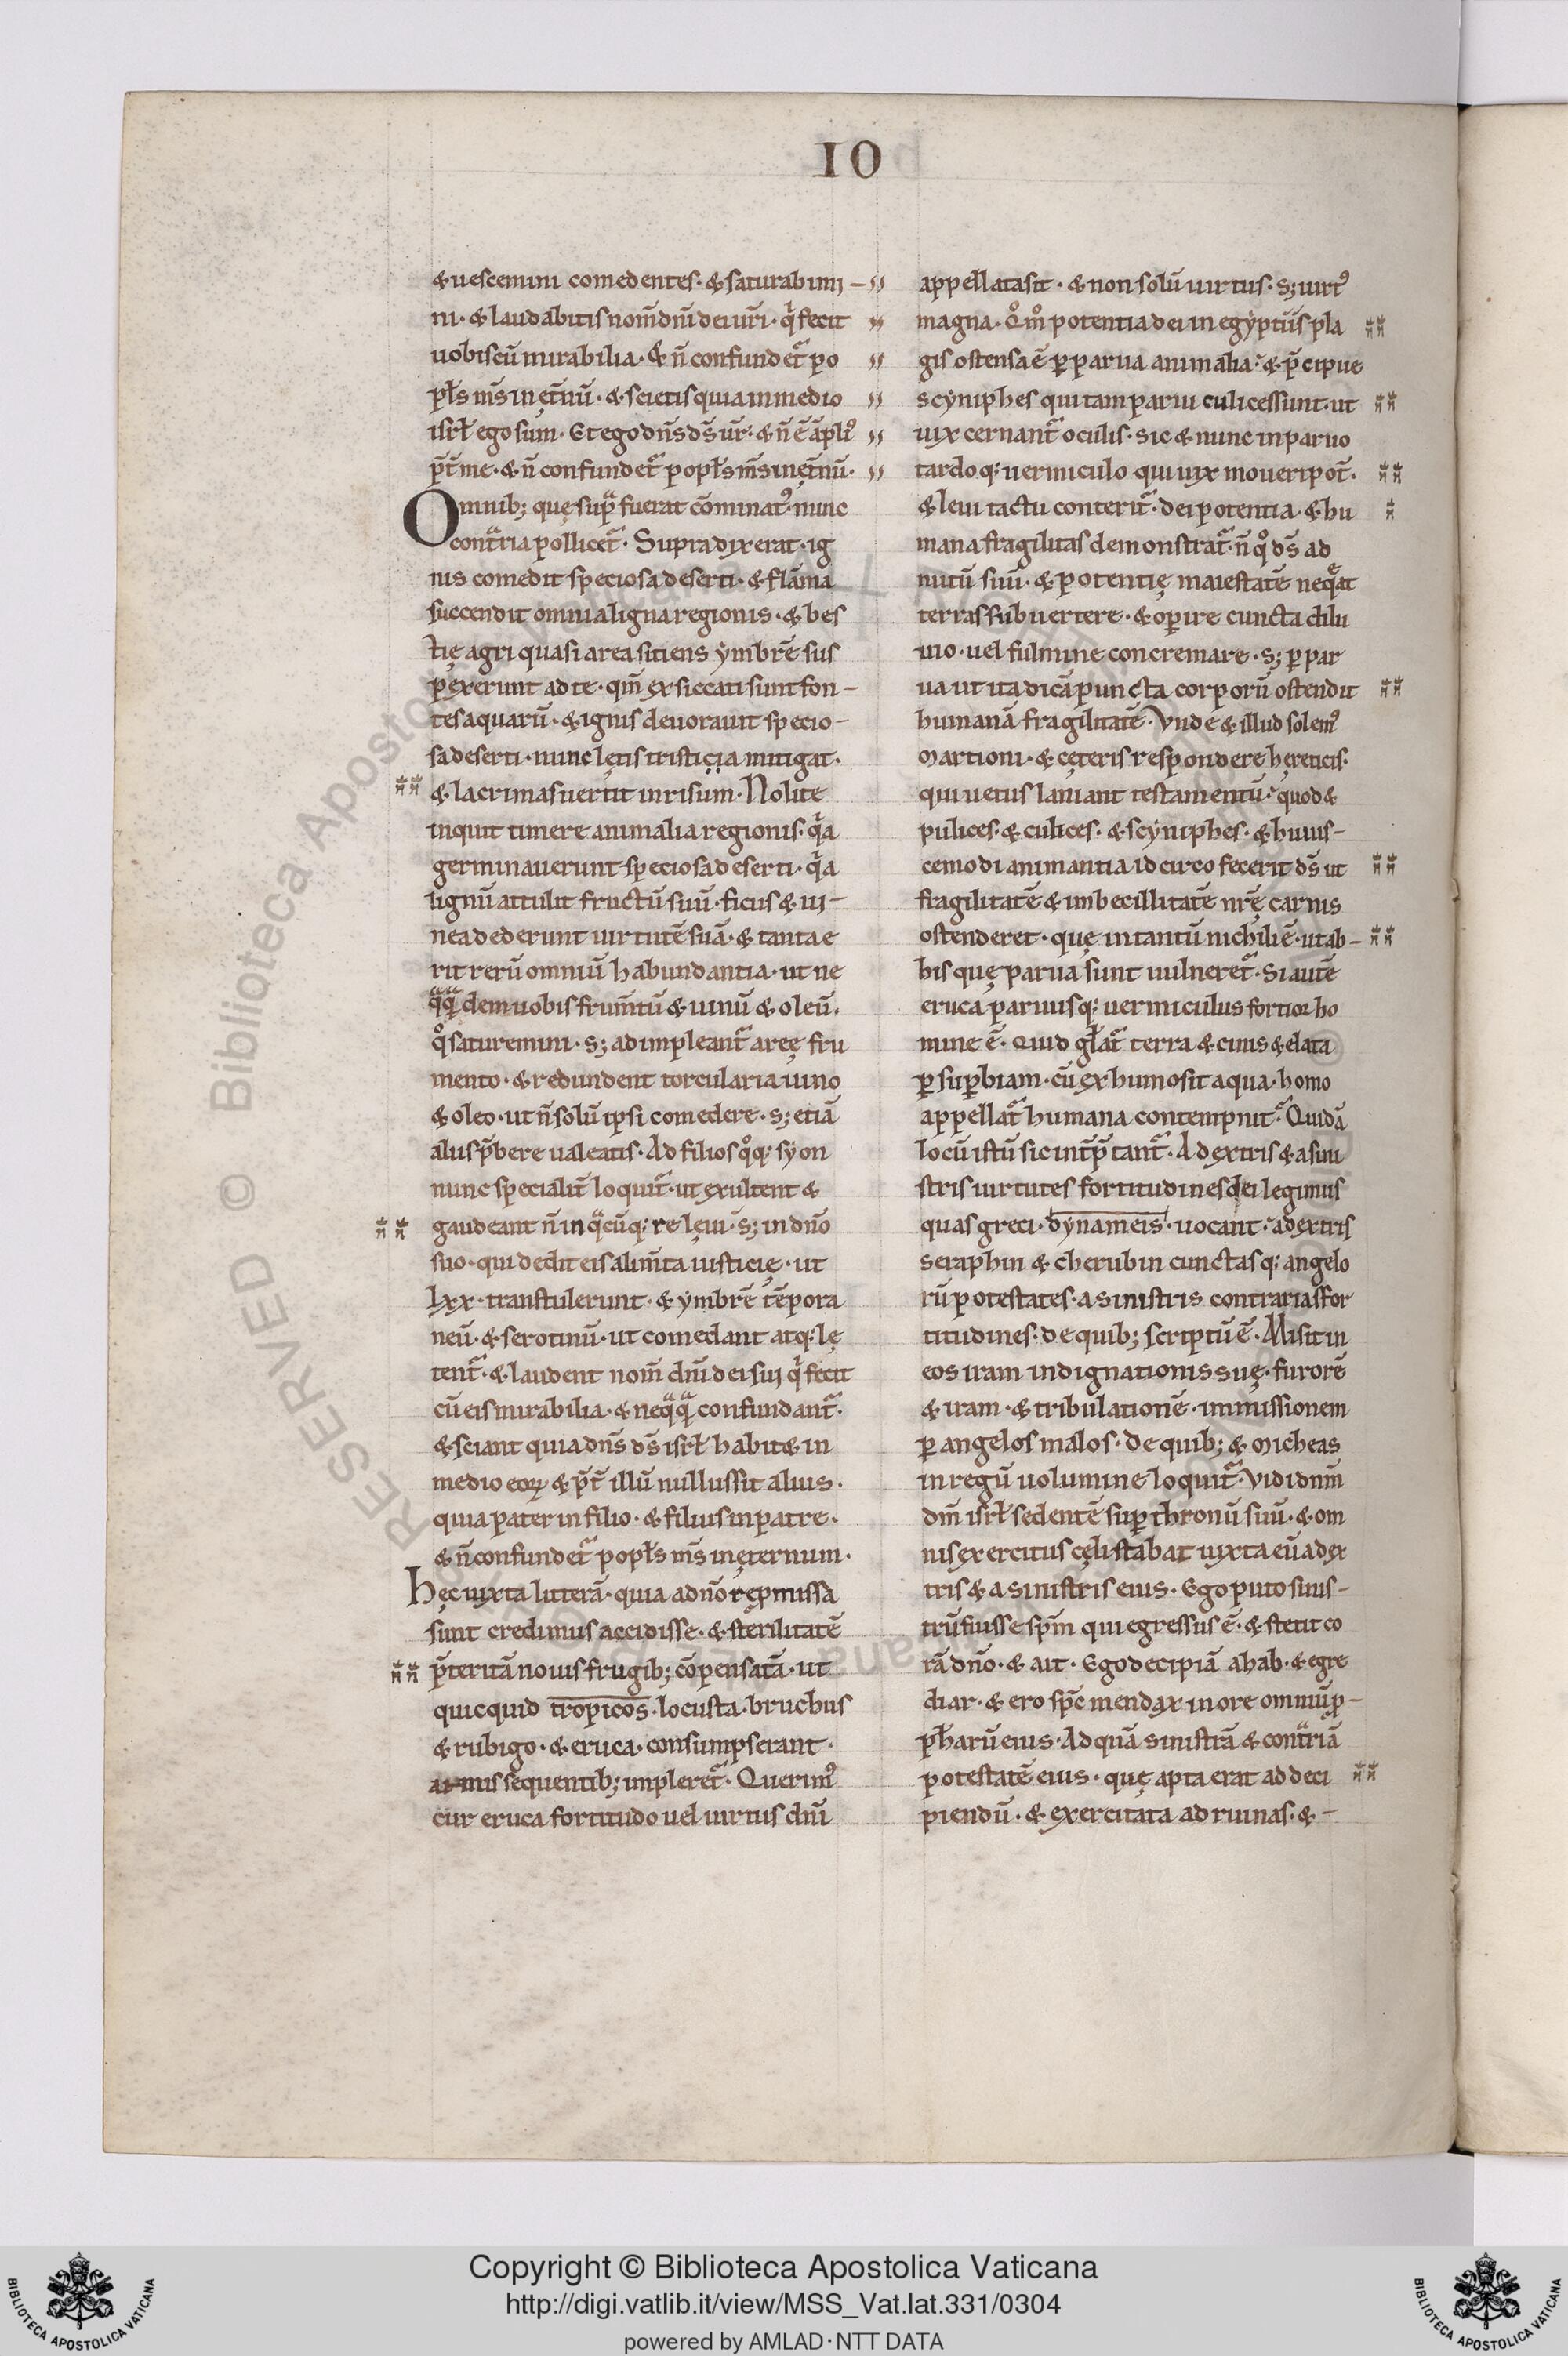 IO
& uescemini comedentes· & saturabimi-
ni· & laudabitis nom̄ dn̄i dei ur̄i· qͥ fecit
uobiscū mirabilia· & n̄ confundet᷑ po
pl̄s ms̄ in ęt̄nū· & scietis quia in medio
isrl̄ ego sum· Et ego dn̄s ds̄ ur̄· & n̄ ē āpliꝰ
p̄t̄ me· & n̄ confundet᷑ popl̄s ms̄ in ęt̄nū·
Omnib; quę supͣ fuerat cōminatꝰ· nunc
contͣria pollicet᷑· Supra dixerat· ig
nis comedit speciosa deserti· & flāma
succendit omnia ligna regionis· & bes
tię agri quasi area sitiens ẏmbrē sus
pexerunt ad te· qm̄ exsiccati sunt fon-
tes aquarū· & ignis deuorauit specio-
sa deserti· nunc lętis tristicia mitigat·
& lacrimas uertit in risum· Nolite
inquit timere animalia regionis· qͥa
germinauerunt speciosa deserti· qͥa
lignū attulit fructū suū· ficus & ui-
nea dederunt uirtutē suā· & tanta e
rit rerū omniū habundantia· ut ne
qͣqͣ dem uobis frum̄tū & uinū & oleū·
qͦ saturemini· s; adimpleant᷑ areę fru
mento· & redundent torcularia uino
& oleo· ut n̄ solū ipsi comedere· s; etiā
aliis p̄bere ualeatis· Ad filios qͦq: syon
nunc specialit̄ loquit᷑· ut exultent &
gaudeant n̄ in qͣcūq: re leui· s; in dn̄o
suo· qui dedit eis alim̄ta iusticię· ut
lxx· transtulerunt· & ẏmbrē tēpora
neū· & serotinū· ut comedant atq: lę
tent᷑· & laudent nom̄ dn̄i dei sui qͥ fecit
cū eis mirabilia· & neqͣqͣ confundant᷑·
& sciant quia dn̄s ds̄ isrl̄ habit& in
medio eoꝝ & p̄t̄ illū nullus sit alius·
quia pater in filio· & filius in patre·
& n̄ confundet᷑ popl̄s ms̄ in ęternum·
Hęc iuxta litterā· quia a dn̄o repmissa
sunt credimus accidisse· & sterilitatē
p̄teritā nouis frugib; cōpensatā· ut
quicquid tropicos· locusta· bruchus
& rubigo· & eruca· consumpserant·
annis sequentib; impleret᷑· Querimꝰ
cur eruca fortitudo uel uirtus dn̄i
appellata sit· & non solū uirtus· s; uirtꝰ
magna· Qͦmͦ potentia dei in egẏptiis pla
gis ostensa ē p̱ parua animalia· & p̄cipue
scẏniphes qui tam parui culices sunt· ut
uix cernant᷑ oculis· sic & nunc in paruo
tardoq: uermiculo qui uix moueri pot̄·
& leui tactu conterit᷑· dei potentia· & hu
mana fragilitas demonstrat᷑· n̄ qͦ ds̄ ad
nutū suū· & potentię maiestatē neqͣat
terras subuertere· & opire cuncta dilu
uio· uel fulmine concremare· s; p̱ par
ua ut ita dicā puncta corporū ostendit
humanā fragilitatē· Vnde & illud solemꝰ
Martioni· & cęteris respondere hęreticis·
qui uetus laniant testamentū· quod &
pulices· & culices· & scẏniphes· & huius-
cemodi animantia id circo fecerit ds̄ ut
fragilitatē & imbecillitatē nr̄ę carnis
ostenderet· quę in tantū nichili ē· ut ab-
his quę parua sunt uulneret᷑· Si autē
eruca paruusq: uermiculus fortior ho
mine ē· Quid gl̄at᷑ terra & cinis & elata
p̱ sup̱biam· cū ex humo sit aqua· homo
appellat᷑ humana contempnit᷑· Quidā
locū istū sic int̄p̄tant᷑· A dextris & a sini
stris uirtutes fortitudines dei legimus
quas greci· dynameis· uocant· a dextris
seraphin & cherubin cunctasq: angelo
rū potestates· a sinistris contrarias for
titudines· de quib; scriptū ē· Misit in
eos iram indignationis suę· furorē
& iram· & tribulationē· immissionem
p̱ angelos malos· De quib; & Micheas
in regū uolumine loquit᷑· Vidi dnm̄
dm̄ isrl̄ sedentē sup̱ thronū suū· & om
nis exercitus cęli stabat iuxta eū a dex
tris & a sinistris eius· Ego puto sinis-
trū fuisse sp̄m qui egressus ē· & stetit co
rā dn̄o· & ait· Ego decipiā ahab· & egre
diar· & ero sp̄c mendax in ore omniū p̱-
ph̄arū eius· Ad quā sinistrā & contͣriā
potestatē eius· quę apta erat ad deci
piendū· & exercitata ad ruinas· &-
RESERVED © Biblioteca Apostolica Vaticana
Copyright © Biblioteca Apostolica Vaticana
http://digi.vatlib.it/view/MSS_Vat.lat.331/0304
powered by AMLAD·NTT DATA
BIBLIOTECA APOSTOLICA VATICANA
BIBLIOTECA APOSTOLICA VATICANA